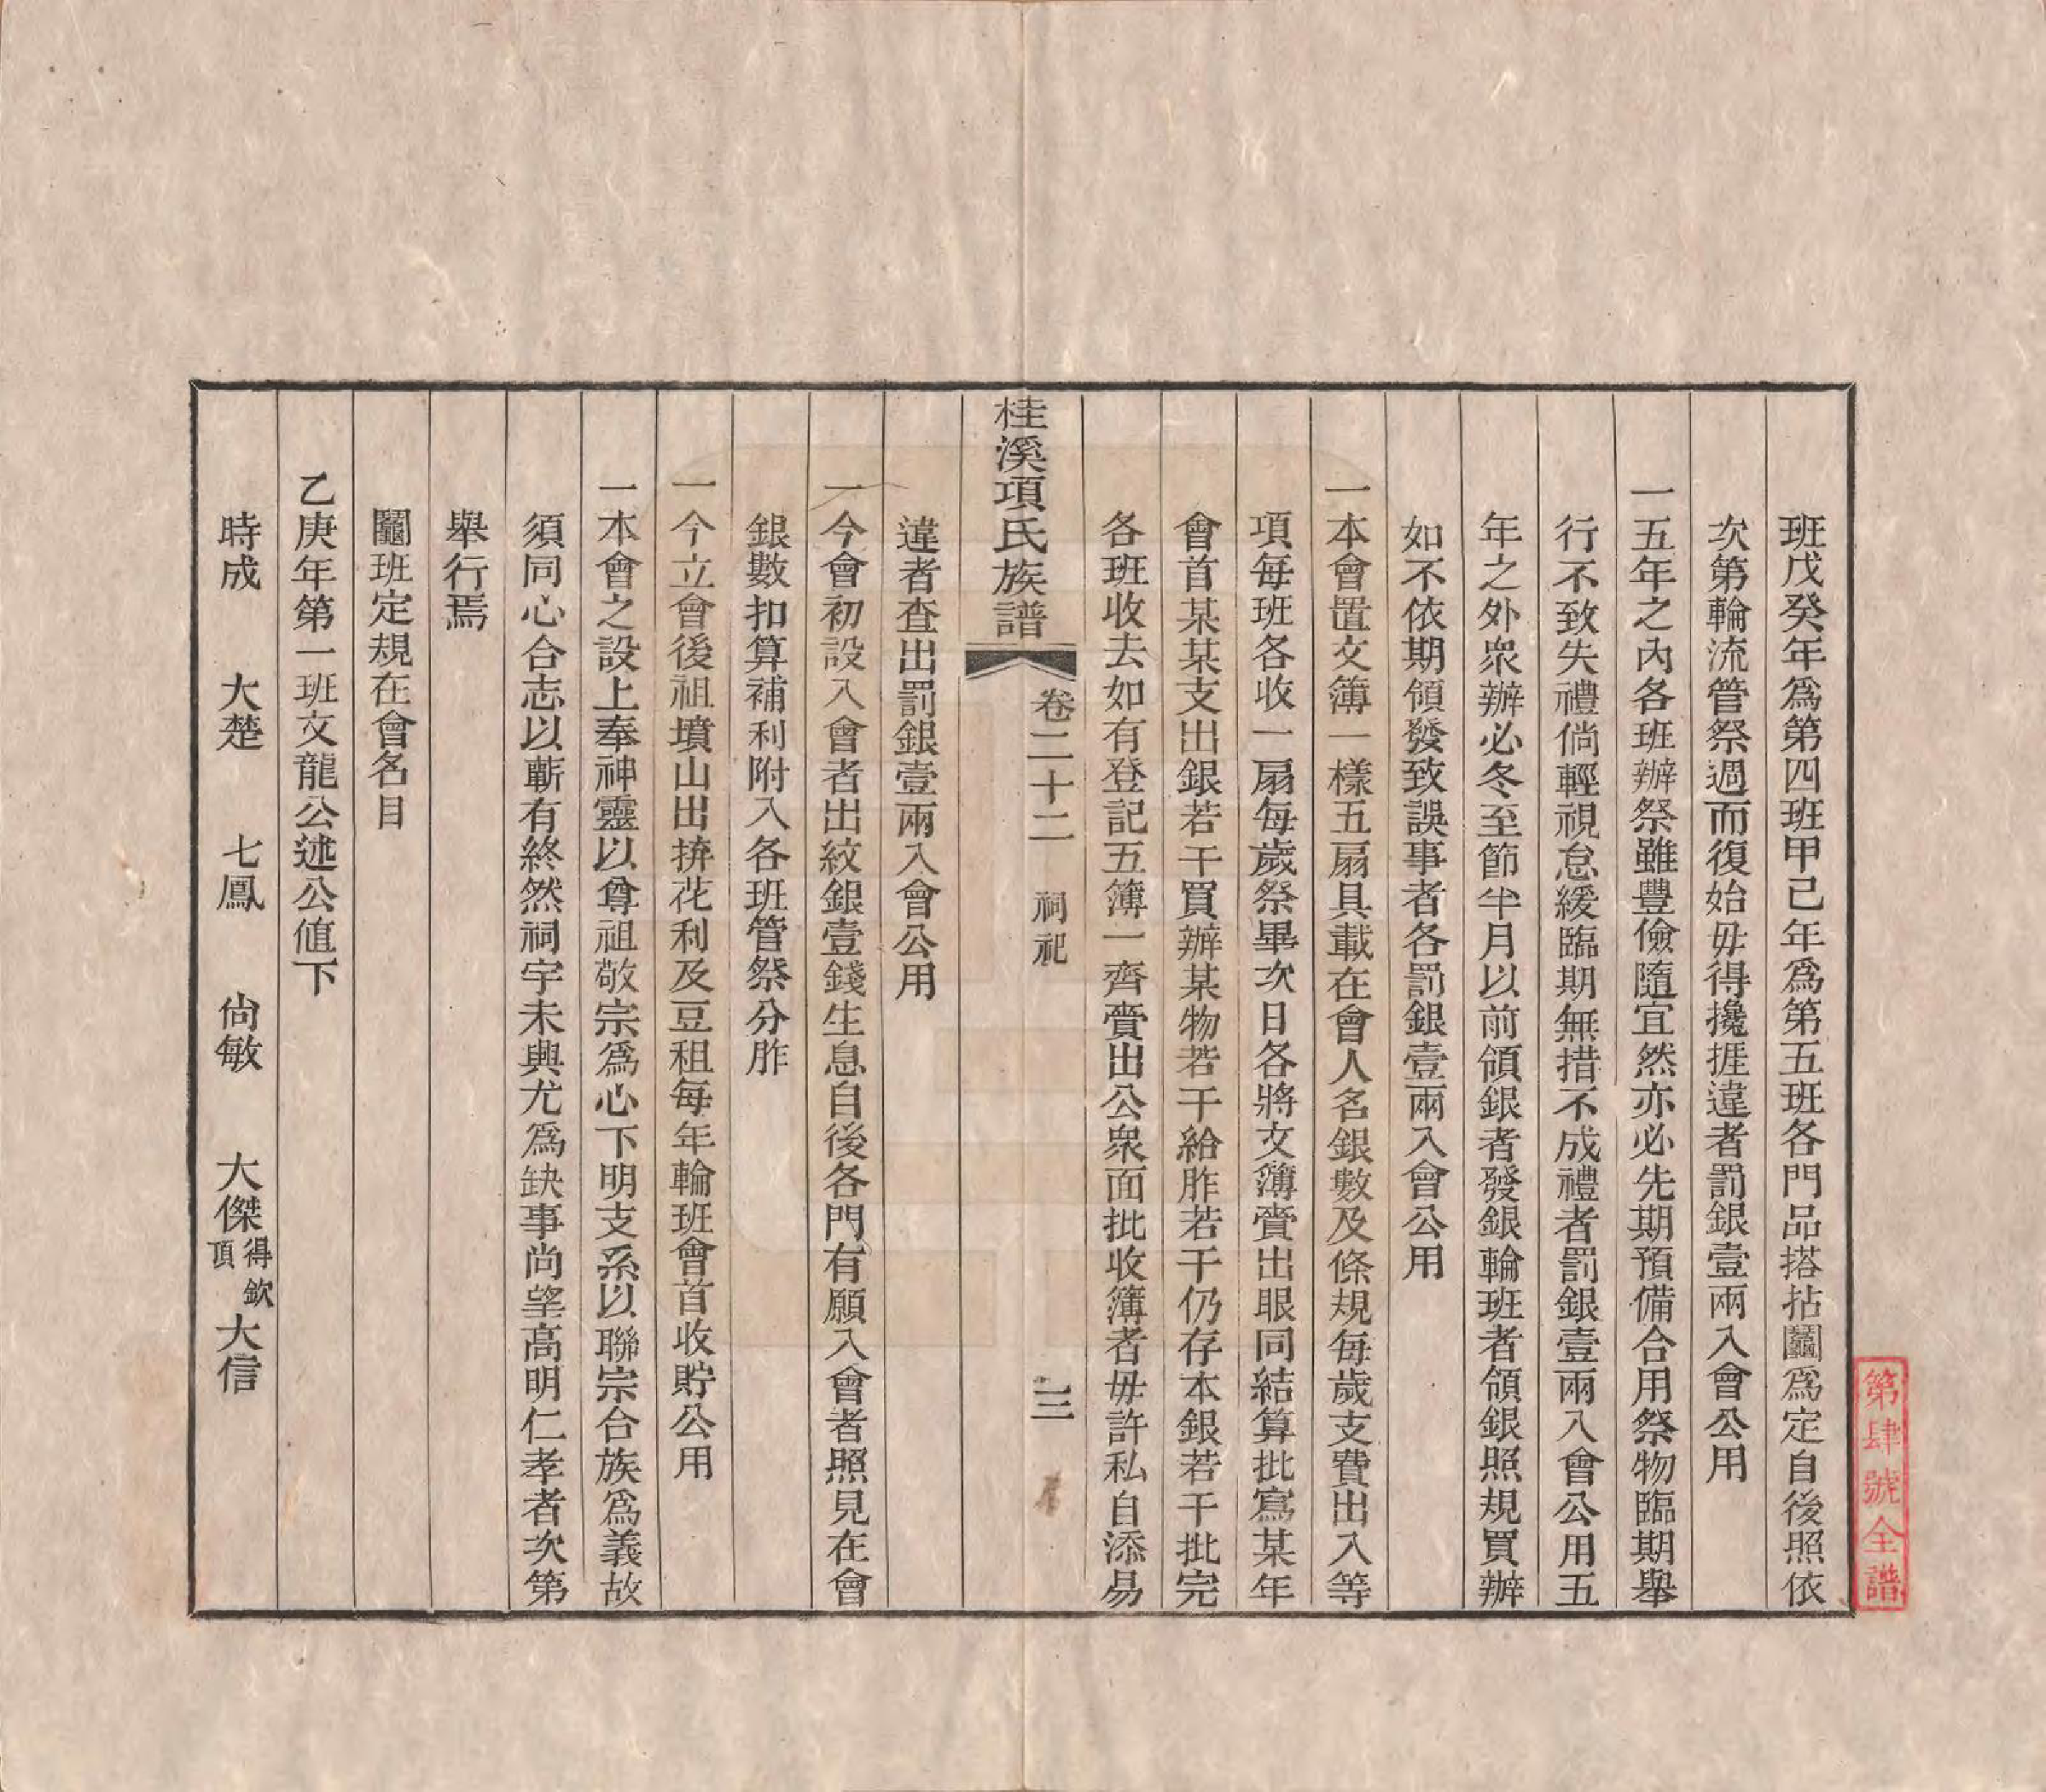 班戊癸年爲第四班甲己年爲第五班各門品搭拈鬮爲定自後照依
次第輪流管祭週而復始毋得攙捱違者罰銀壹兩入會公用
一五年之內各班辦祭雖豐儉隨宜然亦必先期預備合用祭物臨期舉
行不致失禮倘輕視怠緩臨期無措不成禮者罰銀壹兩入會公用五
年之外衆辦必冬至節半月以前領銀者發銀輪班者領銀照規買辦
如不依期領發致誤事者各罰銀壹兩入會公用
一本會置文簿一樣五扇具載在會人名銀數及條規每歲支費出入等
項每班各收一扇每歲祭畢次日各將文簿賫出眼同結算批寫某年
會首某某支出銀若干買辦某物若干給胙若干仍存本銀若干批完
各班收去如有登記五簿一齊賫出公衆面批收簿者毋許私自添易
桂溪項氏族譜 卷二十二 祠祀 三
違者查出罰銀壹兩入會公用
一今會初設入會者出紋銀壹錢生息自後各門有願入會者照見在會
銀數扣算補利附入各班管祭分胙
一今立會後祖墳山出拚花利及豆租每年輪班會首收貯公用
一本會之設上奉神靈以尊祖敬宗爲心下明支系以聯宗合族爲義故
須同心合志以蘄有終然祠宇未興尤爲缺事尚望高明仁孝者次第
舉行焉
鬮班定規在會名目
乙庚年第一班文龍公述公値下
時成 大楚 七鳳 尙敏 大傑得欽頂 大信
第肆號全譜